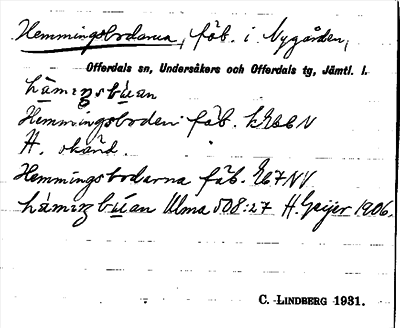 Hemmingsbodarna, fäb. i Nygården,
Offerdals sn, Undersåkers och Offerdals tg, Jämtl. l.
Hemmingsboden fäb.
H. skänd.
Hemmingsbodarna fäb. E67NV
Ulma 508:27 H. Geijer 1906.
C. LINDBERG 1931.